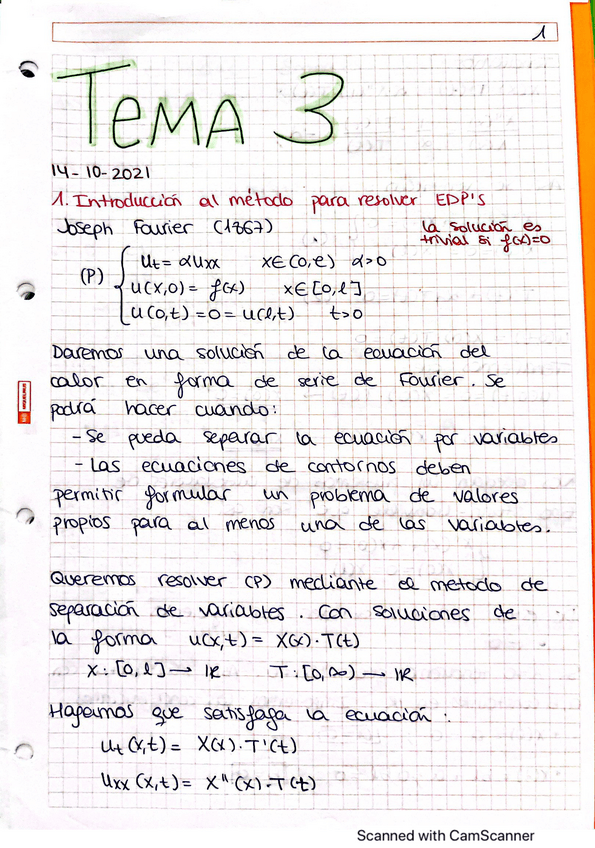 1
TEMA 3
14-10-2021
1. Introducción al método para resolver EDP'S
Joseph Fourier (1867)
La solución es
trivial si f(x)=0
(P) { ut = αuxx x∈(0,e) α>0
u(x,0) = f(x) x∈[0,l]
u(0,t) = 0 = u(l,t) t>0
Daremos una solución de la ecuación del
calor en forma de serie de Fourier. Se
podrá hacer cuando:
- Se pueda separar la ecuación por variables
- Las ecuaciones de contornos deben
permitir formular un problema de valores
propios para al menos una de las variables.
Queremos resolver (P) mediante el metodo de
separación de variables. Con soluciones de
la forma u(x,t) = X(x)·T(t)
X:[0,l] → IR T:[0,∞) → IR
Hagamos que satisfaga la ecuación:
ut (x,t) = X(x)·T'(t)
uxx (x,t) = X''(x)·T(t)
Scanned with CamScanner